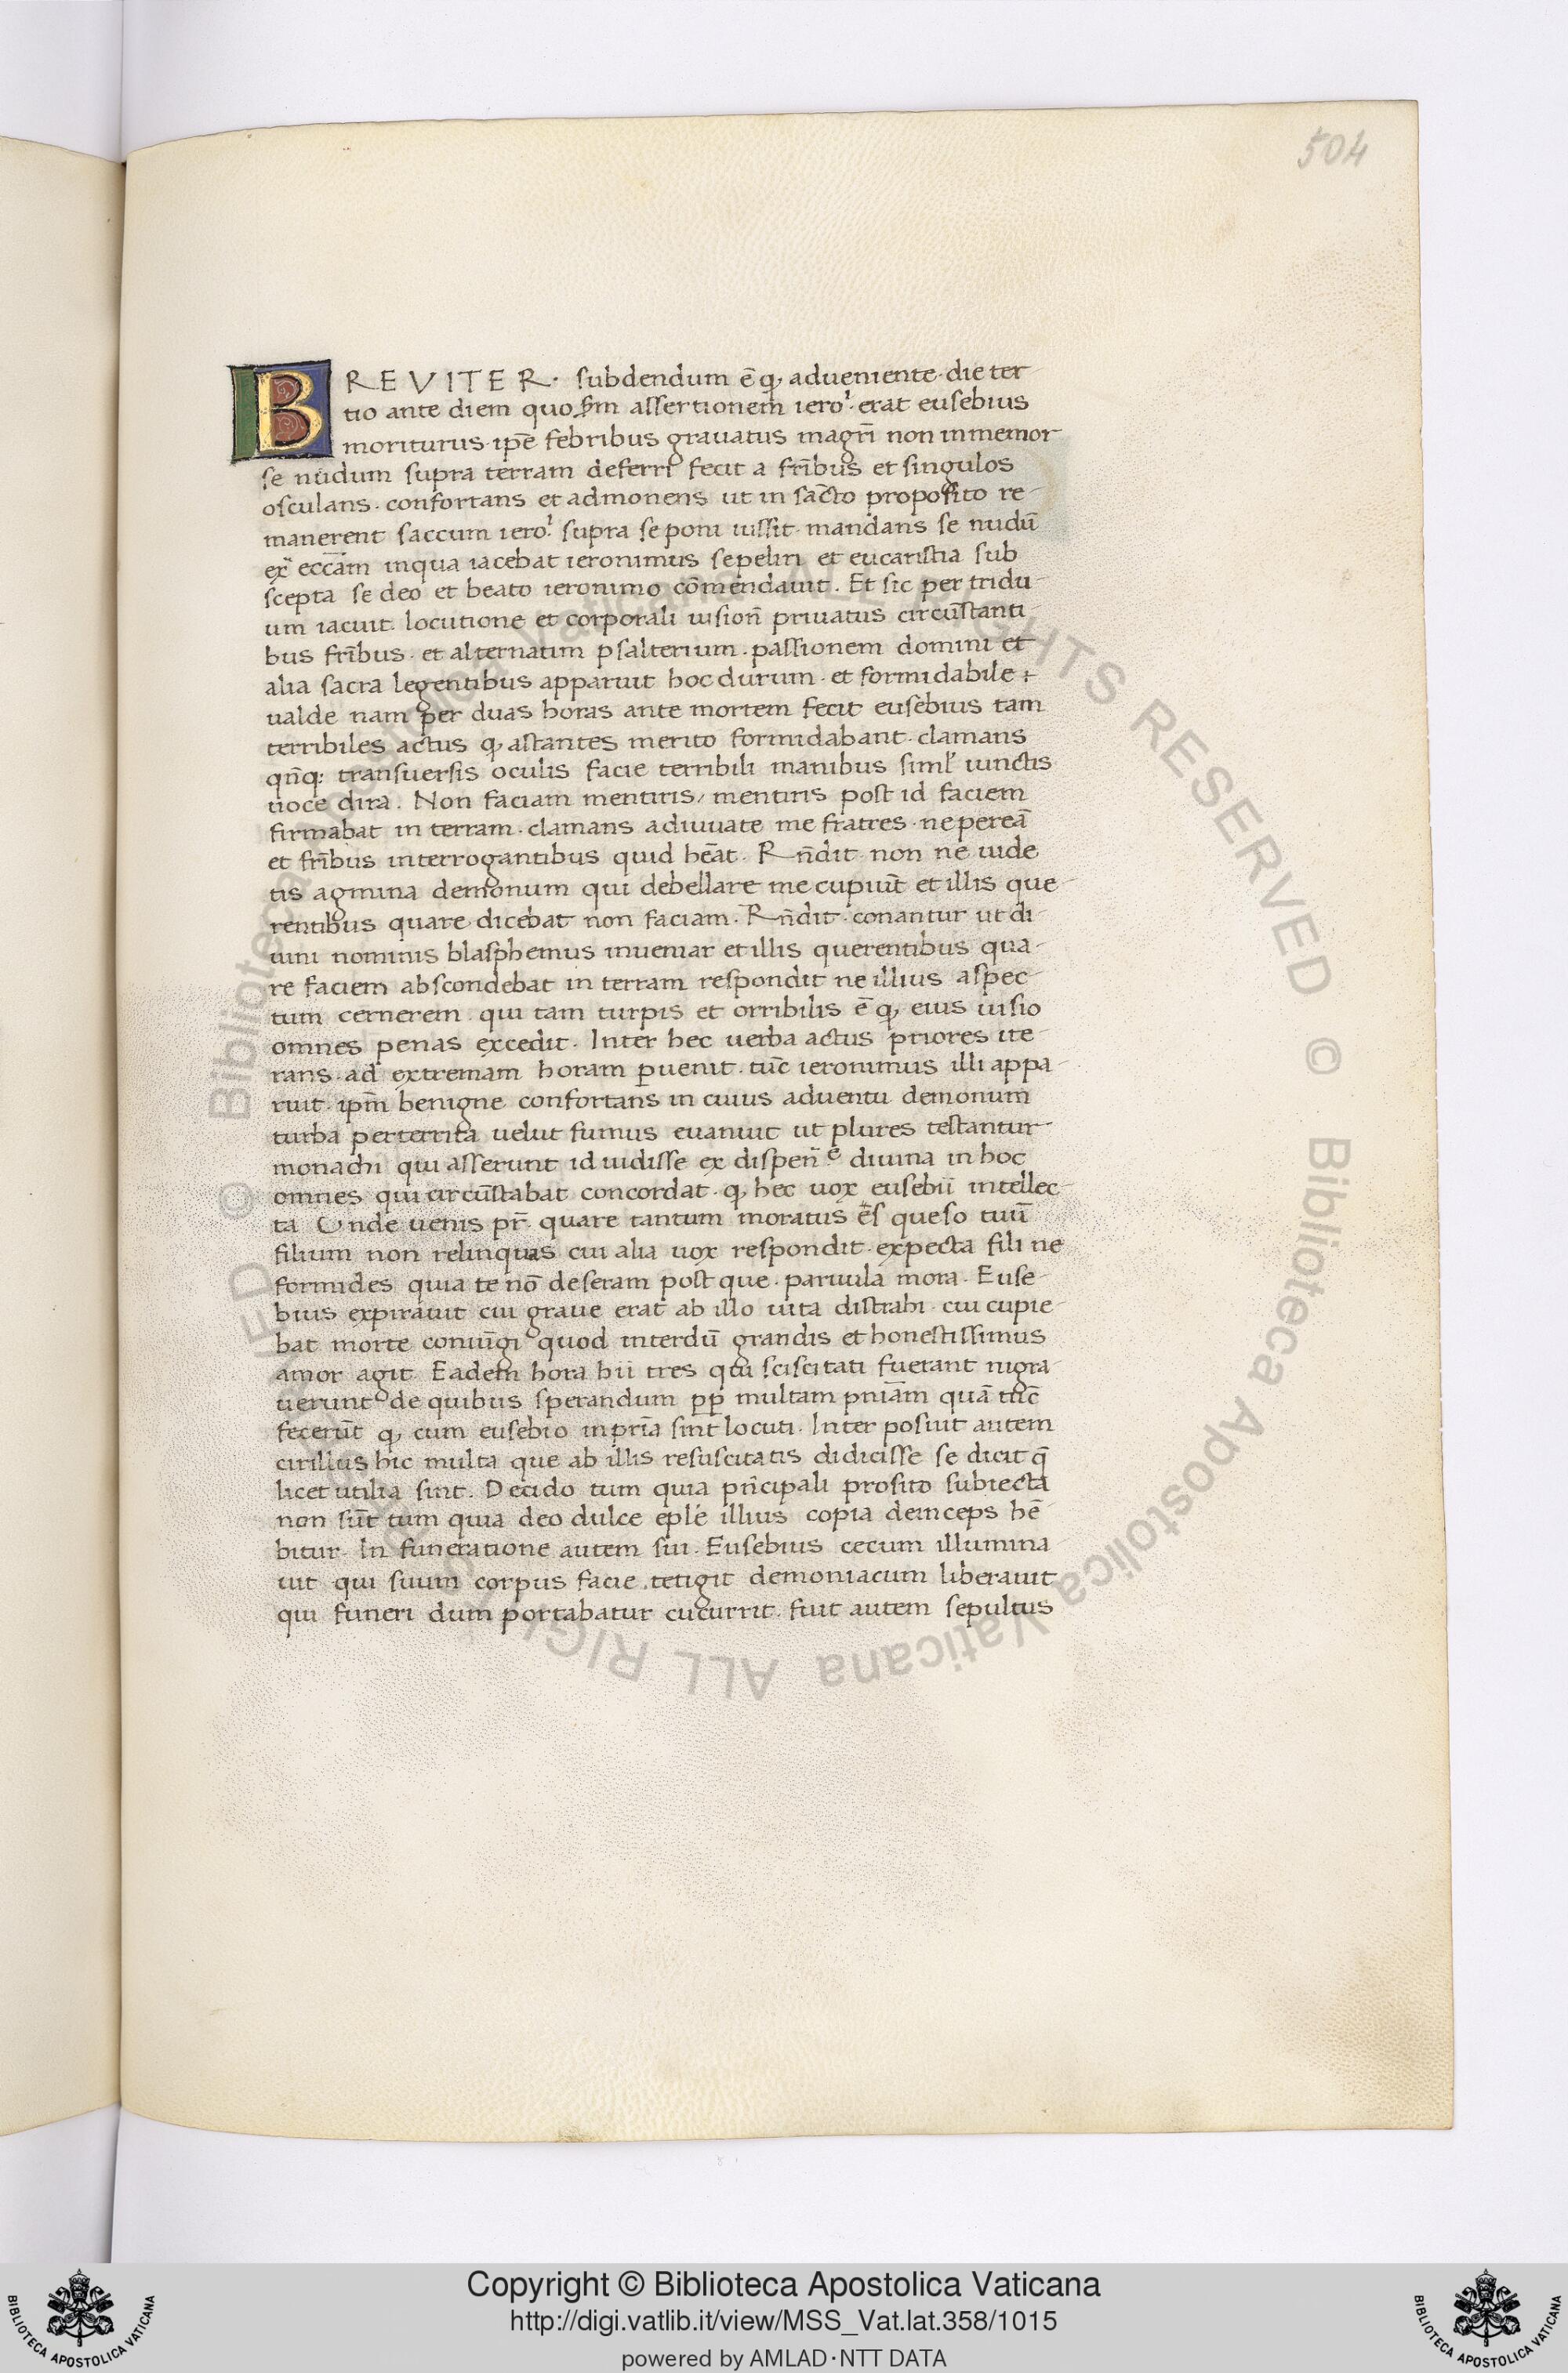 504
BREVITER. subdendum ē q, adueniente. die ter-
tio ante diem quo, scdm assertionem iero'. erat eusebius
moriturus. ipē febribus grauatus magñ non inmemor
se nudum supra terram deferri fecit a frībus et singulos
osculans. confortans et admonens ut in sācto proposito re-
manerent saccum iero' supra se poni iussit. mandans se nudū
ex̄ ecc̄am in qua iacebat ieronimus sepeliri et eucaristia sub
scepta se deo et beato ieronimo cōmendauit. Et sic per tridu-
um iacuit. locutione et corporali uisioñ priuatus circūstanti-
bus frībus. et alternatim psalterium. passionem domini et
alia sacra legentibus apparuit hoc durum. et formidabile +
ualde nam per duas horas ante mortem fecit eusebius tam
terribiles actus q, astantes merito formidabant. clamans
qn̄q: transuersis oculis facie terribili manibus siml' iunctis
uoce dira. Non faciam mentiris, mentiris post id faciem
firmabat in terram. clamans adiuuate me fratres. ne pereā
et frībus interrogantibus quid hēat. Rn̄dit. non ne uide
tis agmina demonum qui debellare me cupiūt et illis que-
rentibus quare dicebat non faciam. Rn̄dit. conantur ut di-
uini nominis blasphemus inueniar et illis querentibus qua-
re faciem abscondebat in terram respondit ne illius aspec-
tum cernerem. qui tam turpis et orribilis ē q, eius uisio
omnes penas excedit. Inter hec uerba actus priores ite-
rans. ad extremam horam p̱uenit. tūc ieronimus illi appa-
ruit. ipm̄ benigne confortans in cuius aduentu demonum
turba perterrita uelut fumus euanuit ut plures testantur-
monachi qui asserunt id uidisse ex dispeñe diuina in hoc
omnes qui circūstabat concordat. q, hec uox eusebii intellec-
ta Unde uenis pr̄. quare tantum moratus ēs queso tuū
filium non relinquas cui alia uox respondit. expecta fili ne
formides quia te nō deseram post que. paruula mora. Euse-
bius expirauit cui graue erat ab illo uita distrahi. cui cupie-
bat morte coniūgi quod interdū grandis et honestissimus
amor agit. Eadem hora hii tres qui sciscitati fuerant nigra-
uerunt de quibus sperandum pp̄ multam pniām quā tūc
fecerūt q, cum eusebio in pr̄ia sint locuti. Inter posuit autem
cirillus hic multa que ab illis resuscitatis didicisse se dicit q̄
licet utilia sint. Decido tum quia pñcipali prosito subiecta
non sūt tum quia deo dulce eple illius copia deinceps hē-
bitur. In funeratione autem sui. Eusebius cecum illumina-
uit qui suum corpus facie. tetigit demoniacum liberauit
qui funeri dum portabatur cucurrit. fuit autem sepultus
© Biblioteca Apostolica Vaticana ALL RIGHTS RESERVED © Biblioteca Apostolica Vaticana ALL RIGHTS RESERVED
Copyright © Biblioteca Apostolica Vaticana
http://digi.vatlib.it/view/MSS_Vat.lat.358/1015
powered by AMLAD·NTT DATA
BIBLIOTECA APOSTOLICA VATICANA
BIBLIOTECA APOSTOLICA VATICANA